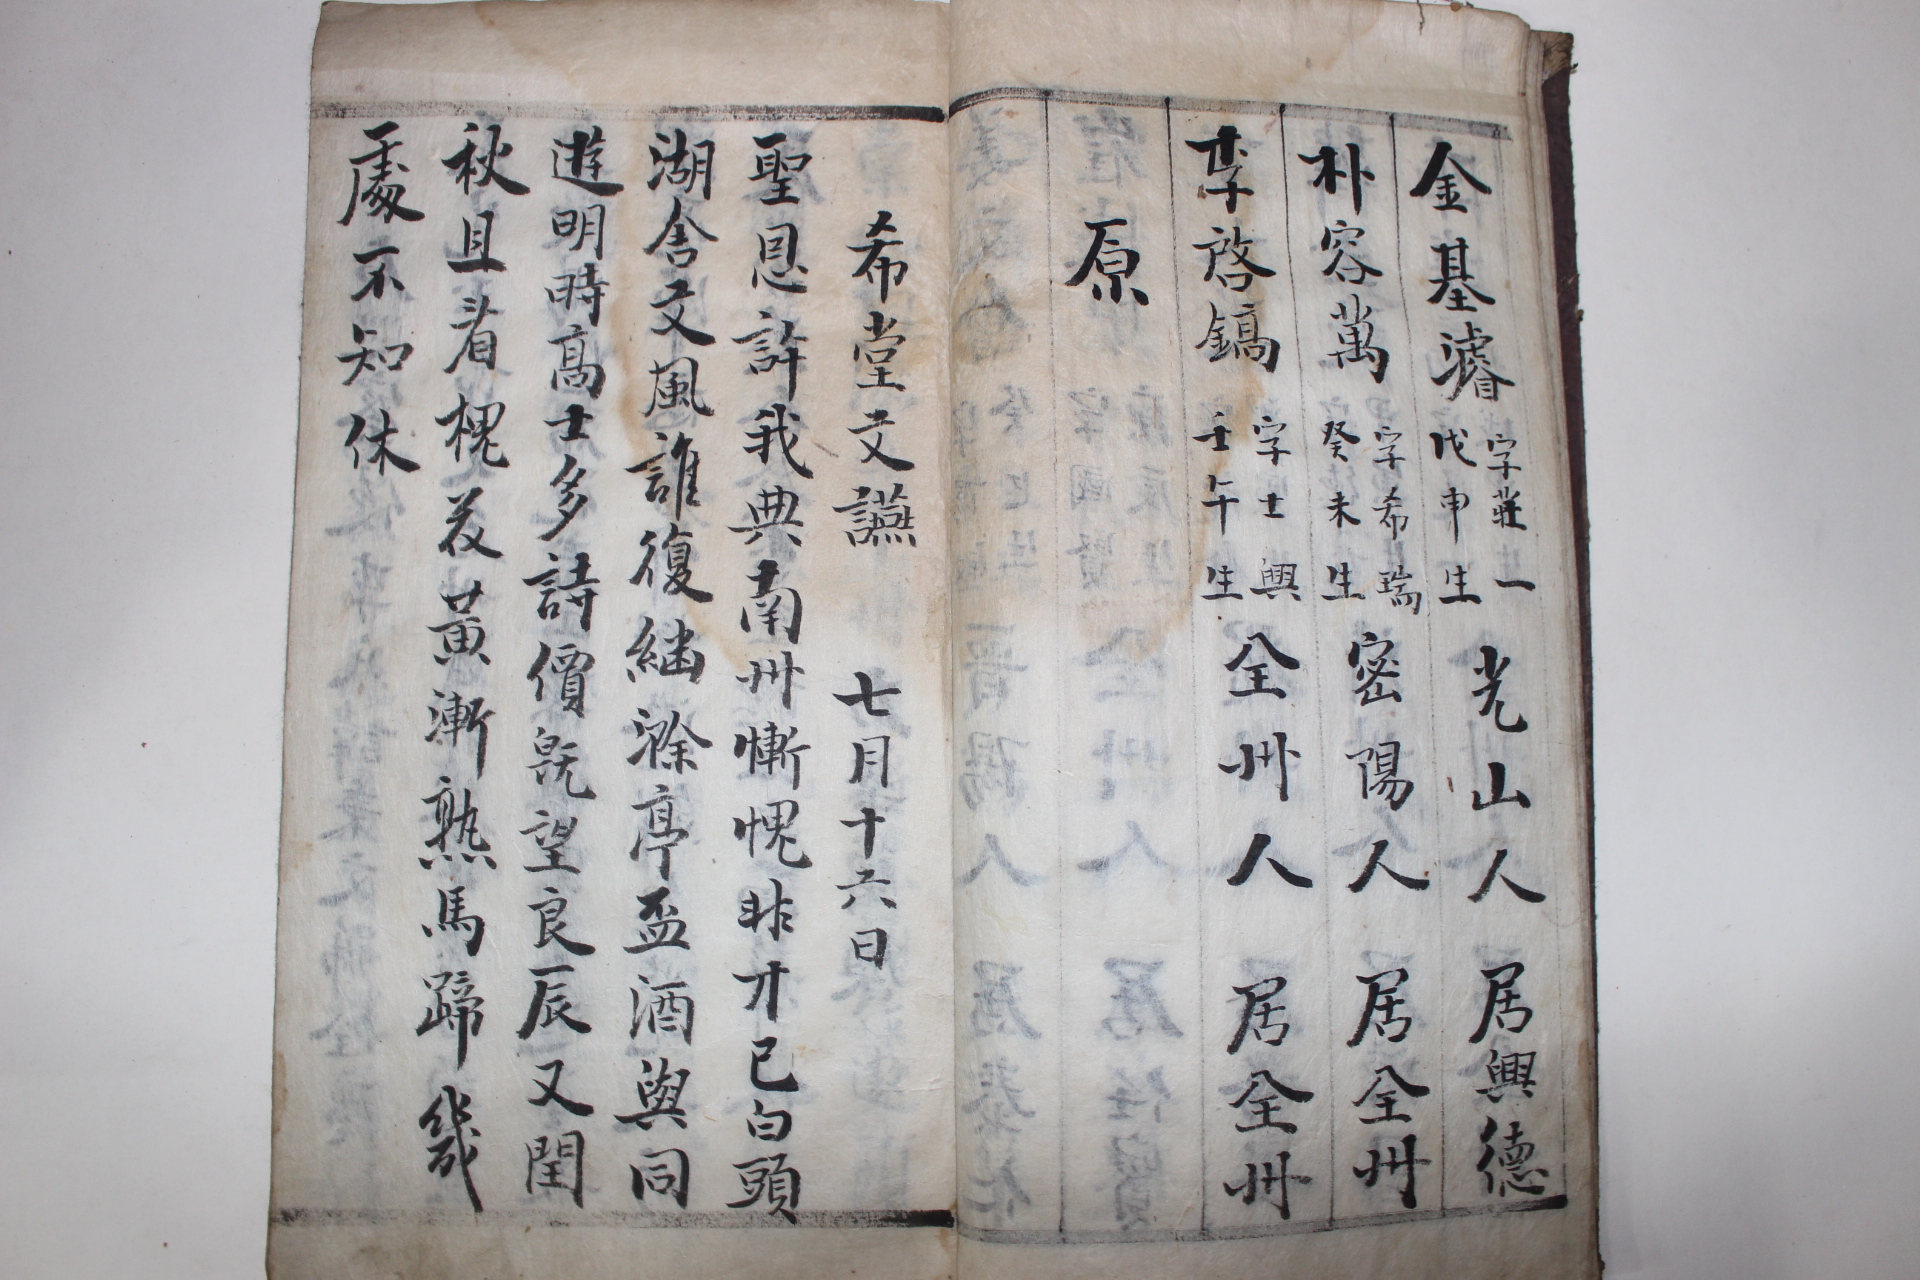 金基濬 字莊一 戊申生 光山人 居興德
朴容萬 字希瑞 癸未生 密陽人 居全州
李啓鎬 字士興 壬午生 全州人 居全州
原
希堂文讌 七月十六日
聖恩許我典南州慚愧非才已白頭
湖舍文風誰復継滁亭盃酒與同
遊明時高士多詩價既望良辰又閏
秋且看槐花黃漸熟馬蹄幾
處不知休